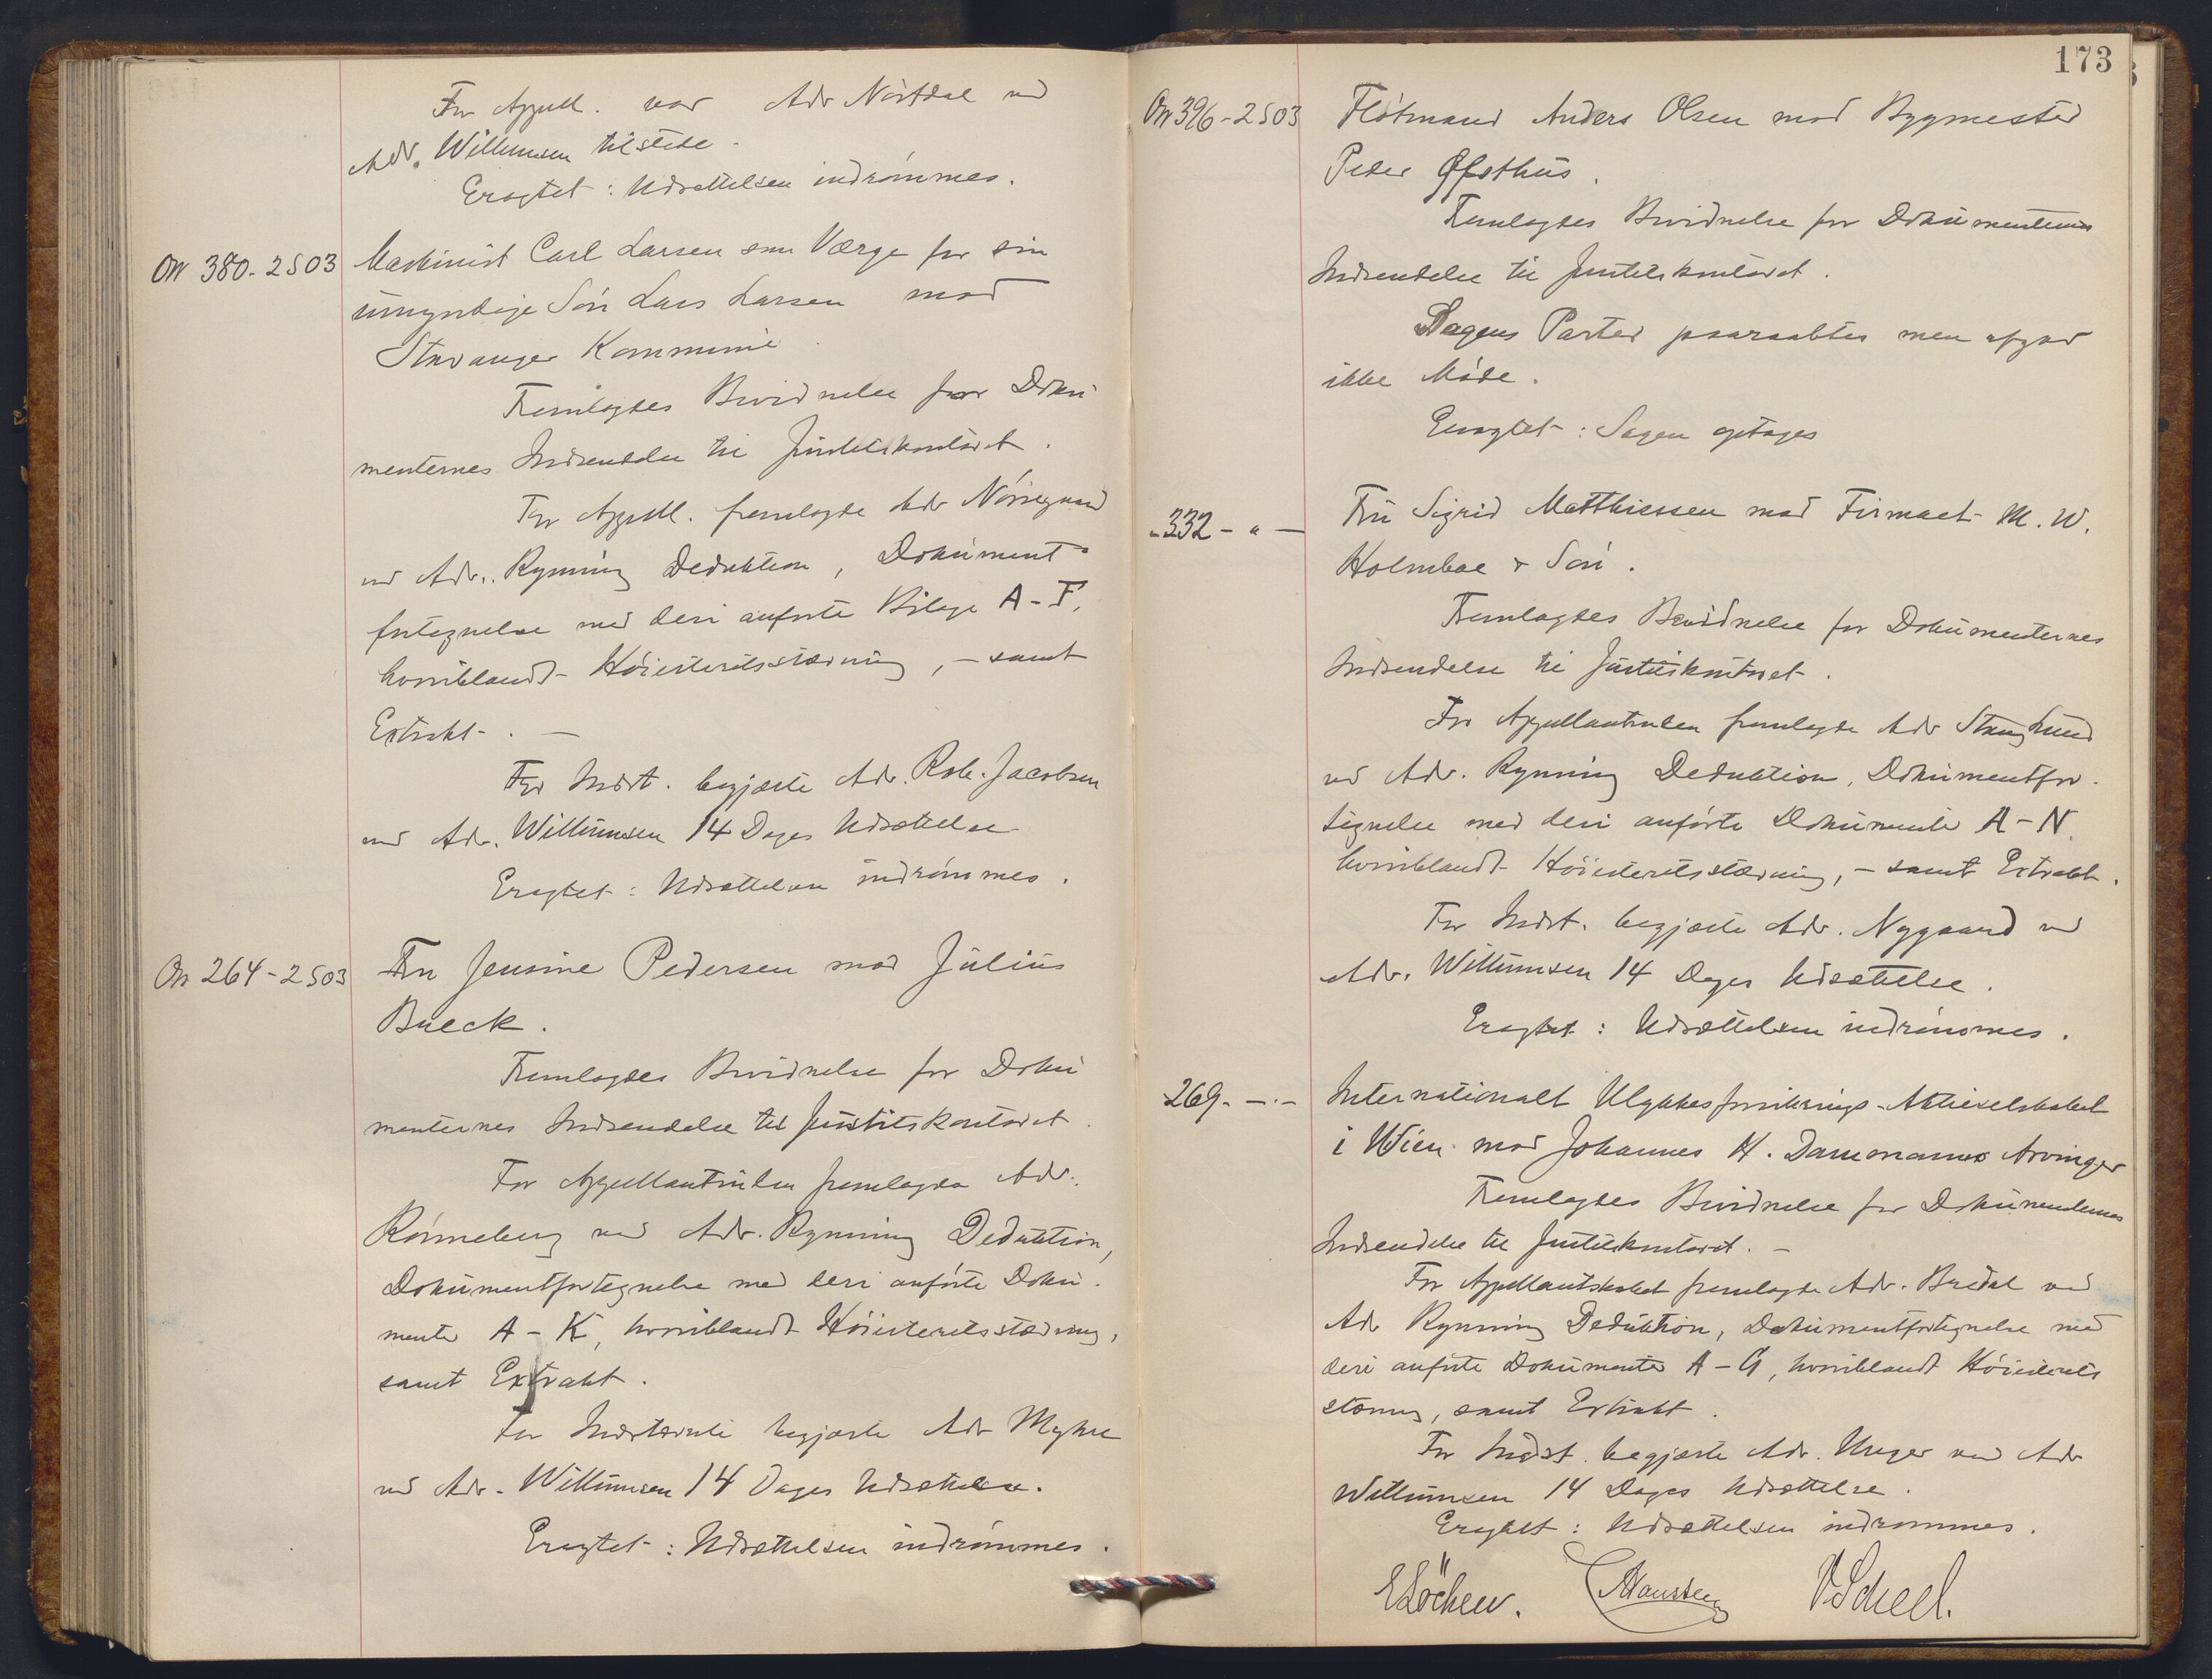 For Appell. var Adv Nørdal ved
Adv. Willumsen tilstede.
Eragtet: Udsættelsen indrømmes.
On 380-2 S 03
Maskinist Carl Larsen som Værge for sin
umyndige Søn Lars Larsen mod
Stavanger Kommune
Fremlagdes Bevidnelse for Doku
menternes Indsendelse til Justitskontoret.
For Appell. fremlagde Adv Nørregaard
ved Adv. Rynning Deduktion, Dokument
fortegnelse med deri anførte Bilage A-F,
hvoriblandt Höiesteretsstævning, - samt
Extrakt. -
For Indst. begjærte Adv. Rob. Jacobsen
ved Adv. Willumsen 14 Dages Udsættelse
Eragtet: Udsættelsen indrømmes.
On 264-2 S 03
Fru Jensine Pedersen mod Julius
Bueck.
Fremlagdes Bevidnelse for Doku
menternes Indsendelse til Justitskontoret.
For Appellantinden fremlagde Adv.
Rönneberg ved Adv. Rynning Deduktion,
Dokumentfortegnelse med deri anförte Doku-
menter A-K, hvoriblandt Höiesteretsstævning,
samt Extrakt.
For Indstævnte begjærte Adv Myhre
ved Adv. Willumsen 14 Dages Udsættelse.
Eragtet: Udsættelsen indrömmes.
173
On 396-2 S 03
Flötmand Anders Olsen mod Bygmester
Peder Øfsthus.
Fremlagdes Bevidnelse for Dokumenternes
Indsendelse til Justitskontoret.
Sagens Parter paaraabtes men afgav
ikke Möde.
Eragtet: Sagen optages
- 332 - " -
Fru Sigrid Matthiessen mod Firmaet M. W.
Holmboe & Sön.
Fremlagdes Bevidnelse for Dokumenternes
Indsendelse til Justitskontoret.
For Appellantinden fremlagde Adv Stang Lund
ved Adv. Rynning Deduktion, Dokumentfor-
tegnelse med deri anförte Dokumenter A-N
hvoriblandt Höiesteretsstævning, - samt Extrakt.
For Indst. begjærte Adv. Nygaard ved
Adv. Willumsen 14 Dages Udsættelse.
Eragtet: Udsættelsen indrömmes.
269 - " -
Internationalt Ulykkesforsikrings-Aktieselskabet
i Wien mod Johannes H. Dammanns Arvinger
Fremlagdes Bevidnelse for Dokumenternes
Indsendelse til Justitskontoret. -
For Appellantskabet fremlagde Adv. Bredal ved
Adv Rynning Deduktion, Dokumentfortegnelse med
deri anførte Dokumenter A-G, hvoriblandt Höiesterets
stævning, samt Extrakt.
For Indst. begjærte Adv. Unger ved Adv
Willumsen 14 Dages Udsættelse.
Eragtet: Udsættelsen indrømmes.
E Löchen. Hansteen V Scheel.